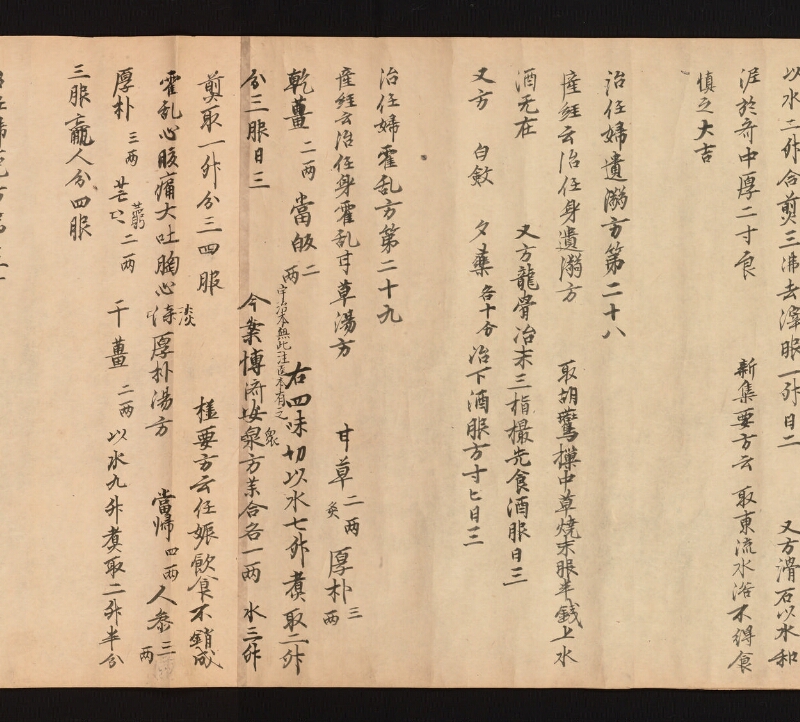 以水二升合煎三沸去滓服一升日二　又方滑石以水和
泥於齐中厚二寸良　新集要方云　取東流水浴不得食
慎之大吉
治任婦遺溺方第二十八
産経云治任身遺溺方　取胡鷰樔中草燒末服半錢上水
酒无在　又方龍骨冶末三指撮先食酒服日三
又方　白斂　夕藥各十分冶下酒服方寸匕日三
治任婦霍乱方第二十九
産経云治任身霍乱甘草湯方　甘草二两炙　厚朴三两
乾薑二两　當皈二两　右四味切以水七升煮取二升
宇治本無此注医本有之
分三服日三　今案博済安衆方等合各一两　水三升
煎取一升分三四服　極要方云任娠飲食不銷成
霍乱心腹痛大吐胸心淡厚朴湯方　當帰四两　人参三两
厚朴三两　芎二两　干薑二两　以水九升煮取二升半分
三服羸人分四服